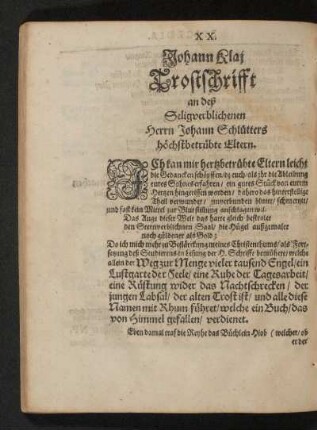 XX.
Johann Klaj
Trostschrifft
an deß
Seligverblichenen
Herrn Johann Schlütters
höchstbetrübte Eltern.
ICh kan mir hertzbetrübte Eltern leicht
die Gedancken schöpffen, daß euch als ihr die Ableibung
eures Sohnes erfahren, ein gutes Stück von eurem
Hertzen hingerissen worden, daher des
Theil verwundet, blutet, schmertzt,
und fast kein Mittel zur Blutstillung anschlagen wil.
Das Auge dieser Welt das hatte gleich bestralet
den Sternverblichnen Saal, die Hügel außgemalet
noch güldener als Gold;
Da ich mich mehr zu Bestärckung meines Christenthums, als Zer-
streyung deß Studirens in lesung der H. Schrifft bemühete, welche
allein der Weg zur Menge vieler tausend Engel, ein
Lustgarte der Sele, eine Ruhe der Tagesarbeit,
eine Rüstung wider das Nachtschrecken, der
jungen Labsal, der alten Trost ist, und alle diese
Namen mit Rhum führet, welche ein Buch, das
von Himmel gefallen, verdienet.
Eben damal traf die Reyhe das Büchlein Hiob (welcher, ob
er der